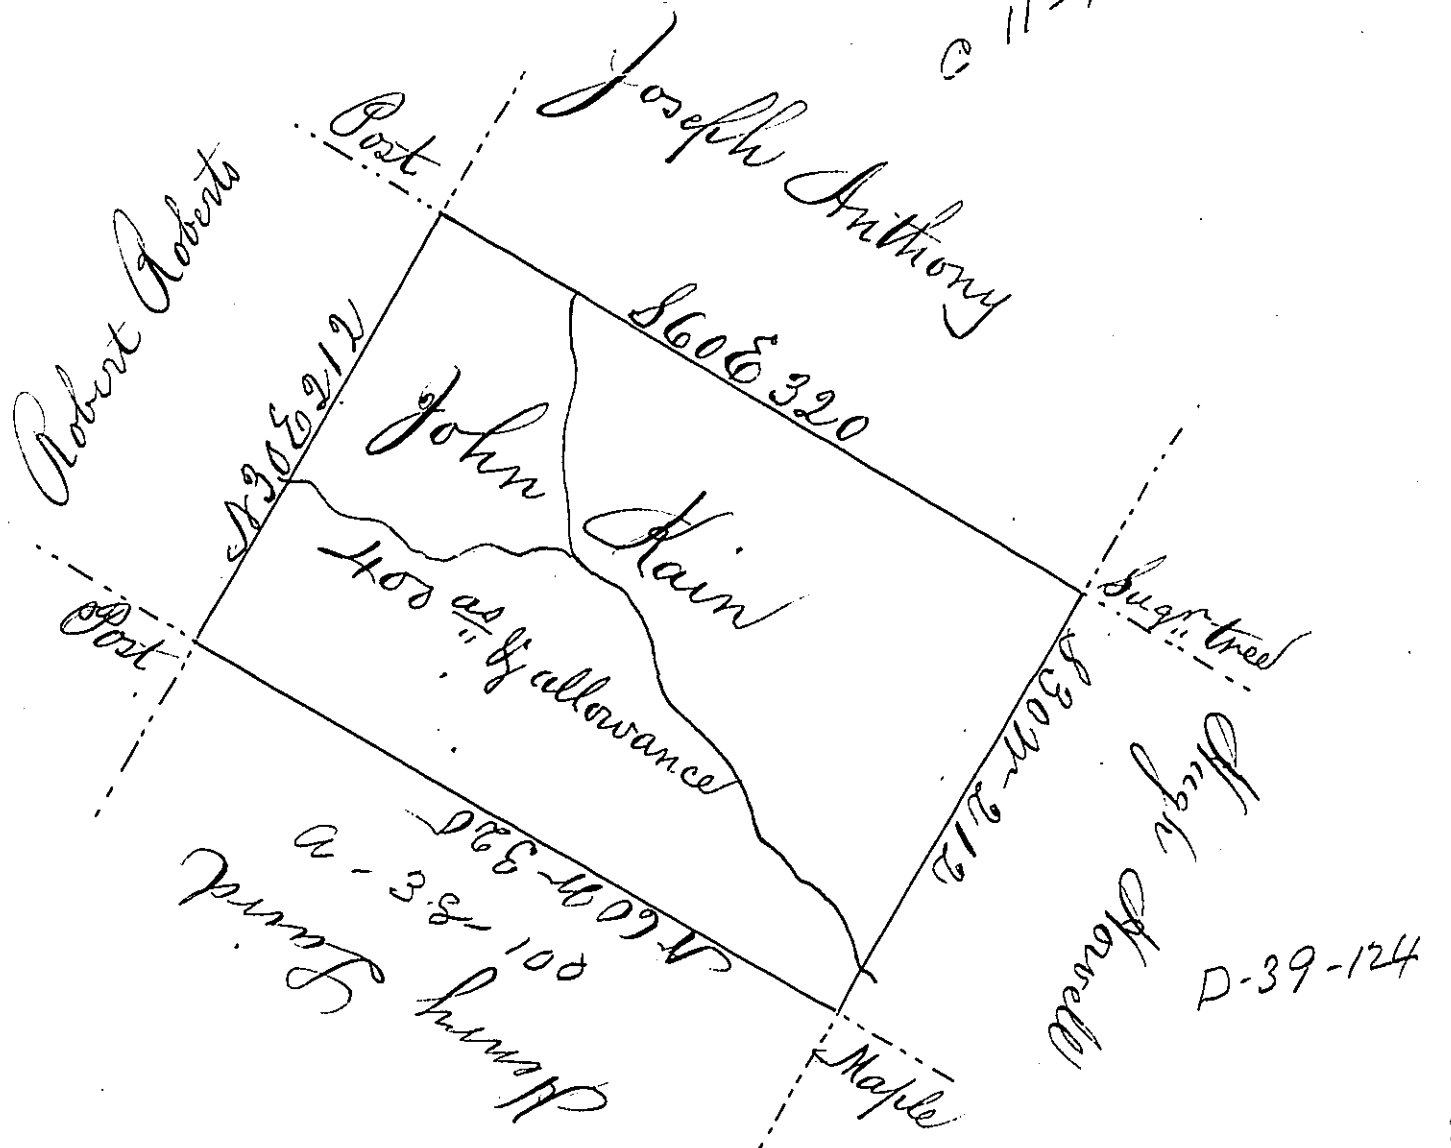 Joseph Anthony
Post
Robert Roberts
S60E 320
N30E212
John Kain
400 as & allowance
Post
Sugr tree
S30W 212
Hugh Howell
D-39-124
N60W 320
Henry Laird
Maple